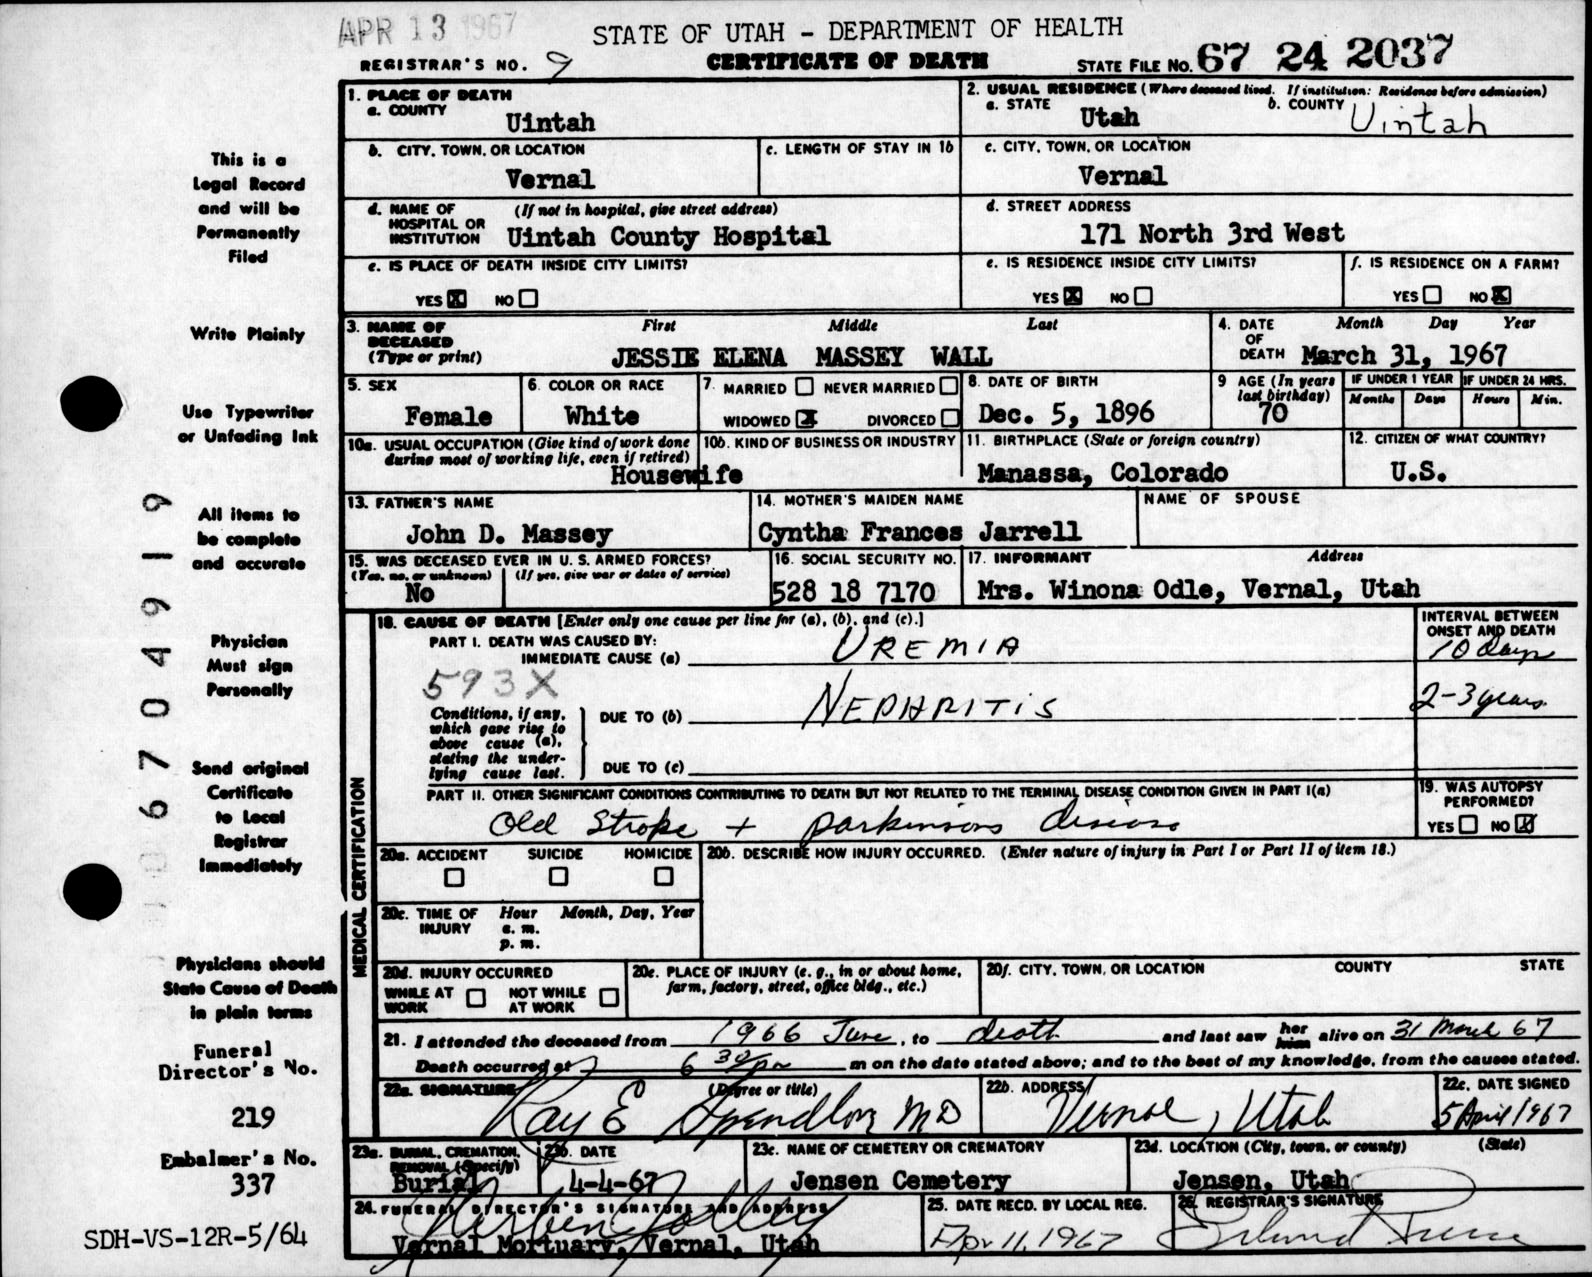 APR 13 1967
STATE OF UTAH - DEPARTMENT OF HEALTH
REGISTRAR'S NO. 9
CERTIFICATE OF DEATH
STATE FILE NO. 67 24 2037
This is a
Legal Record
and will be
Permanently
Filed
Write Plainly
Use Typewriter
or Unfading Ink
All items to
be complete
and accurate
Physician
Must sign
Personally
Send original
Certificate
to Local
Registrar
Immediately
Physicians should
State Cause of Death
in plain terms
Funeral
Director's No.
219
Embalmer's No.
337
SDH-VS-12R-5/64
67 04919
1. PLACE OF DEATH
a. COUNTY
Uintah
2. USUAL RESIDENCE (Where deceased lived. If institution: Residence before admission)
a. STATE
Utah
b. COUNTY
Uintah
b. CITY, TOWN, OR LOCATION
Vernal
c. LENGTH OF STAY IN 1b
c. CITY, TOWN, OR LOCATION
Vernal
d. NAME OF HOSPITAL OR INSTITUTION
(If not in hospital, give street address)
Uintah County Hospital
d. STREET ADDRESS
171 North 3rd West
e. IS PLACE OF DEATH INSIDE CITY LIMITS?
YES X NO
e. IS RESIDENCE INSIDE CITY LIMITS?
YES X NO
f. IS RESIDENCE ON A FARM?
YES NO X
3. NAME OF DECEASED
(Type or print)
First Middle Last
JESSIE ELENA MASSEY WALL
4. DATE OF DEATH
Month Day Year
March 31, 1967
5. SEX
Female
6. COLOR OR RACE
White
7. MARRIED NEVER MARRIED
WIDOWED X DIVORCED
8. DATE OF BIRTH
Dec. 5, 1896
9 AGE (In years last birthday)
70
IF UNDER 1 YEAR
Months Days
IF UNDER 24 HRS.
Hours Min.
10a. USUAL OCCUPATION (Give kind of work done during most of working life, even if retired)
Housewife
10b. KIND OF BUSINESS OR INDUSTRY
11. BIRTHPLACE (State or foreign country)
Manassa, Colorado
12. CITIZEN OF WHAT COUNTRY?
U.S.
13. FATHER'S NAME
John D. Massey
14. MOTHER'S MAIDEN NAME
Cyntha Frances Jarrell
NAME OF SPOUSE
15. WAS DECEASED EVER IN U. S. ARMED FORCES?
(Yes, no, or unknown) (If yes, give war or dates of service)
No
16. SOCIAL SECURITY NO.
528 18 7170
17. INFORMANT Address
Mrs. Winona Odle, Vernal, Utah
MEDICAL CERTIFICATION
18. CAUSE OF DEATH [Enter only one cause per line for (a), (b), and (c).]
PART I. DEATH WAS CAUSED BY:
IMMEDIATE CAUSE (a) UREMIA
INTERVAL BETWEEN ONSET AND DEATH
10 days
593X
Conditions, if any, which gave rise to above cause (a), stating the underlying cause last.
DUE TO (b) NEPHRITIS
2-3 years
DUE TO (c)
PART II. OTHER SIGNIFICANT CONDITIONS CONTRIBUTING TO DEATH BUT NOT RELATED TO THE TERMINAL DISEASE CONDITION GIVEN IN PART I(a)
Old Stroke + parkinsons
19. WAS AUTOPSY PERFORMED?
YES NO X
20a. ACCIDENT SUICIDE HOMICIDE
20b. DESCRIBE HOW INJURY OCCURRED. (Enter nature of injury in Part I or Part II of item 18.)
20c. TIME OF INJURY
Hour Month, Day, Year
a. m.
p. m.
20d. INJURY OCCURRED
WHILE AT WORK NOT WHILE AT WORK
20e. PLACE OF INJURY (e. g., in or about home, farm, factory, street, office bldg., etc.)
20f. CITY, TOWN, OR LOCATION COUNTY STATE
21. I attended the deceased from 1966 June, to death and last saw her him alive on 31 March 67
Death occurred at 6 30/pm m on the date stated above; and to the best of my knowledge, from the causes stated.
22a. SIGNATURE (Degree or title)
Ray E Spendlove MD
22b. ADDRESS
Vernal, Utah
22c. DATE SIGNED
5 April 1967
23a. BURIAL, CREMATION, REMOVAL (Specify)
Burial
23b. DATE
4-4-67
23c. NAME OF CEMETERY OR CREMATORY
Jensen Cemetery
23d. LOCATION (City, town, or county) (State)
Jensen, Utah
24. FUNERAL DIRECTOR'S SIGNATURE AND ADDRESS
Vernal Mortuary, Vernal, Utah
25. DATE RECD. BY LOCAL REG.
Apr 11, 1967
26. REGISTRAR'S SIGNATURE